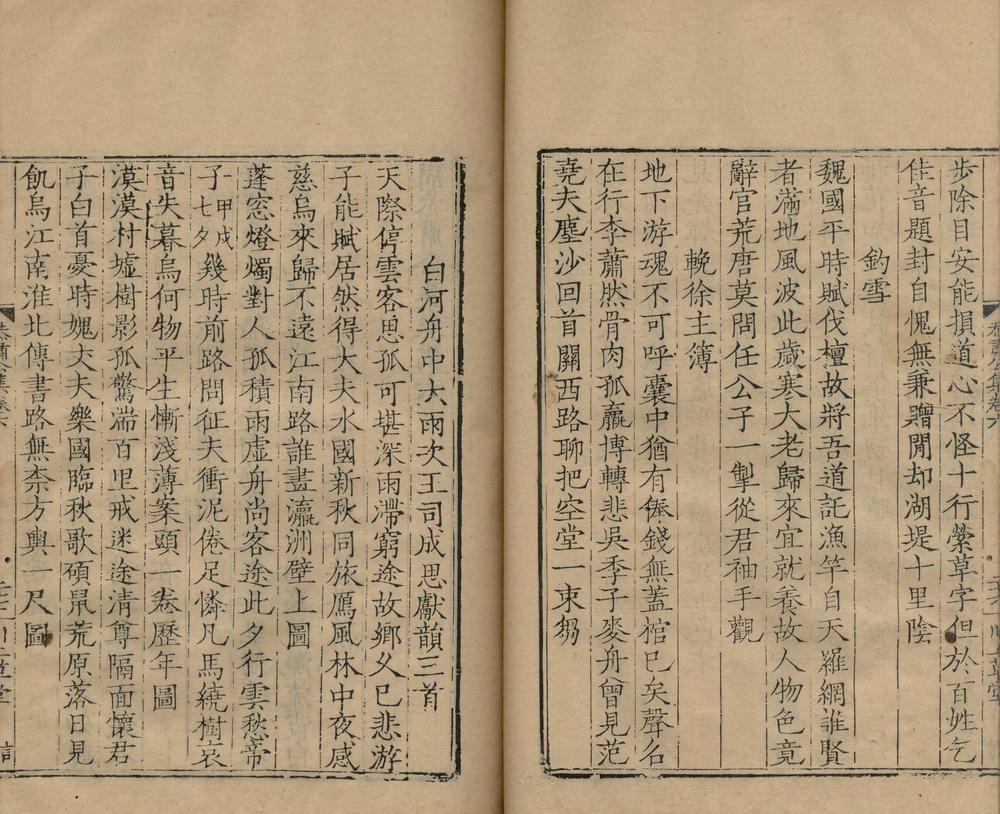 步除目安能損道心不怪十行縈草字但於百姓乞
佳音題封自愧無兼贈閒却湖堤十里陰
釣雪
魏國平時賦伐檀故將吾道託漁竿自天羅網誰賢
者滿地風波此歲寒大老歸來宜就養故人物色竟
辭官荒唐莫問任公子一掣從君袖手觀
輓徐主簿
地下游魂不可呼囊中猶有俸錢無蓋棺已矣聲名
在行李蕭然骨肉孤羸博轉悲吳季子麥舟曾見范
堯夫塵沙回首關西路聊把空堂一束芻
白河舟中大雨次王司成思獻韻三首
天際停雲客思孤可堪深雨滯窮途故鄉父已悲游
子能賦居然得大夫水國新秋同旅鴈風林中夜感
慈烏來歸不遠江南路誰畫瀛洲壁上圖
蓬窓燈燭對人孤積雨虛舟尚客途此夕行雲愁帝
子甲戌七夕幾時前路問征夫衝泥倦足憐凡馬繞樹哀
音失暮烏何物平生慚淺薄案頭一卷歷年圖
漠漠村墟樹影孤驚湍百里戒迷途清尊隔面懷君
子白首憂時媿丈夫樂國臨秋歌碩鼠荒原落日見
飢烏江南淮北傳書路無柰方輿一尺圖